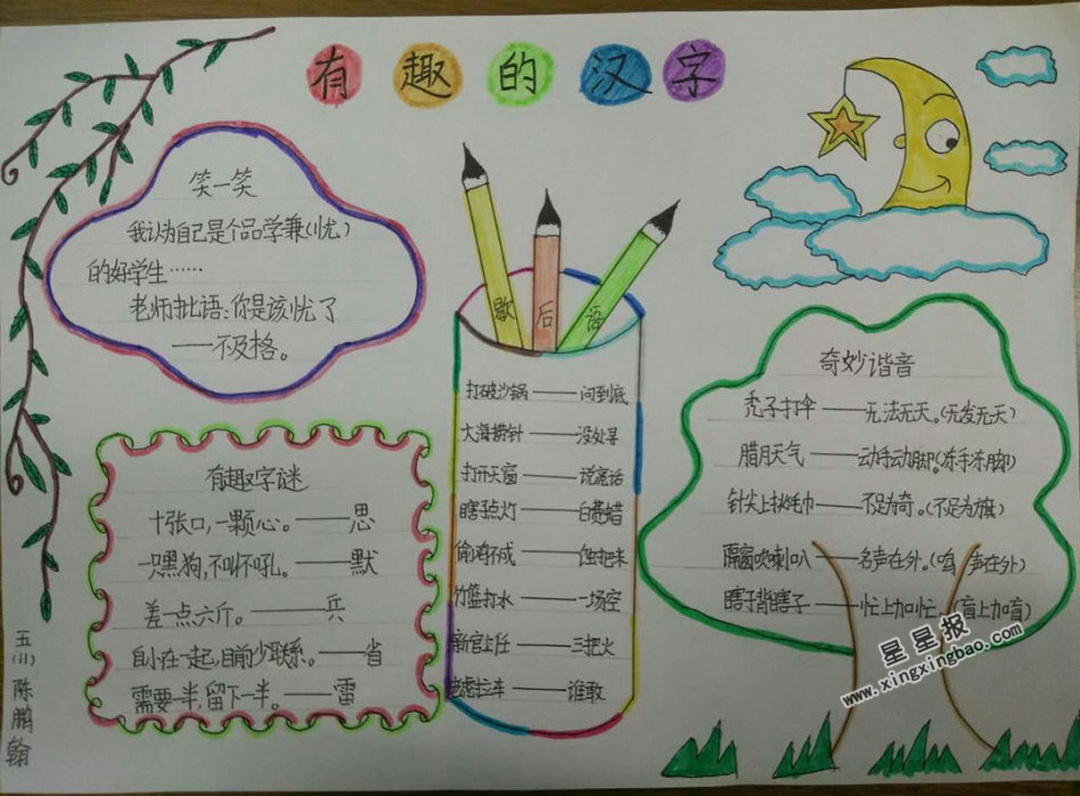 有趣的汉字
笑一笑
我认为自己是个品学兼(忧)
的好学生……
老师批语:你是该忧了
——不及格。
歇后语
打破沙锅——问到底
大海捞针——没处寻
打开天窗——说亮话
瞎子点灯——白费蜡
偷鸡不成——蚀把米
竹篮打水——一场空
新官上任——三把火
老虎拉车——谁敢
奇妙谐音
秃子打伞——无法无天。(无发无天)
腊月天气——动手动脚。(冻手冻脚)
针尖上挑毛巾——不足为奇。(不足为旗)
隔窗吹喇叭——名声在外。(鸣声在外)
瞎子背瞎子——忙上加忙。(盲上加盲)
有趣字谜
十张口,一颗心。——思
一只黑狗,不叫不吼。——默
差一点六斤。——兵
自小在一起,目前少联系。——省
需要一半,留下一半。——雷
五(1)陈鹏翰
星星报
www.xingxingbao.com